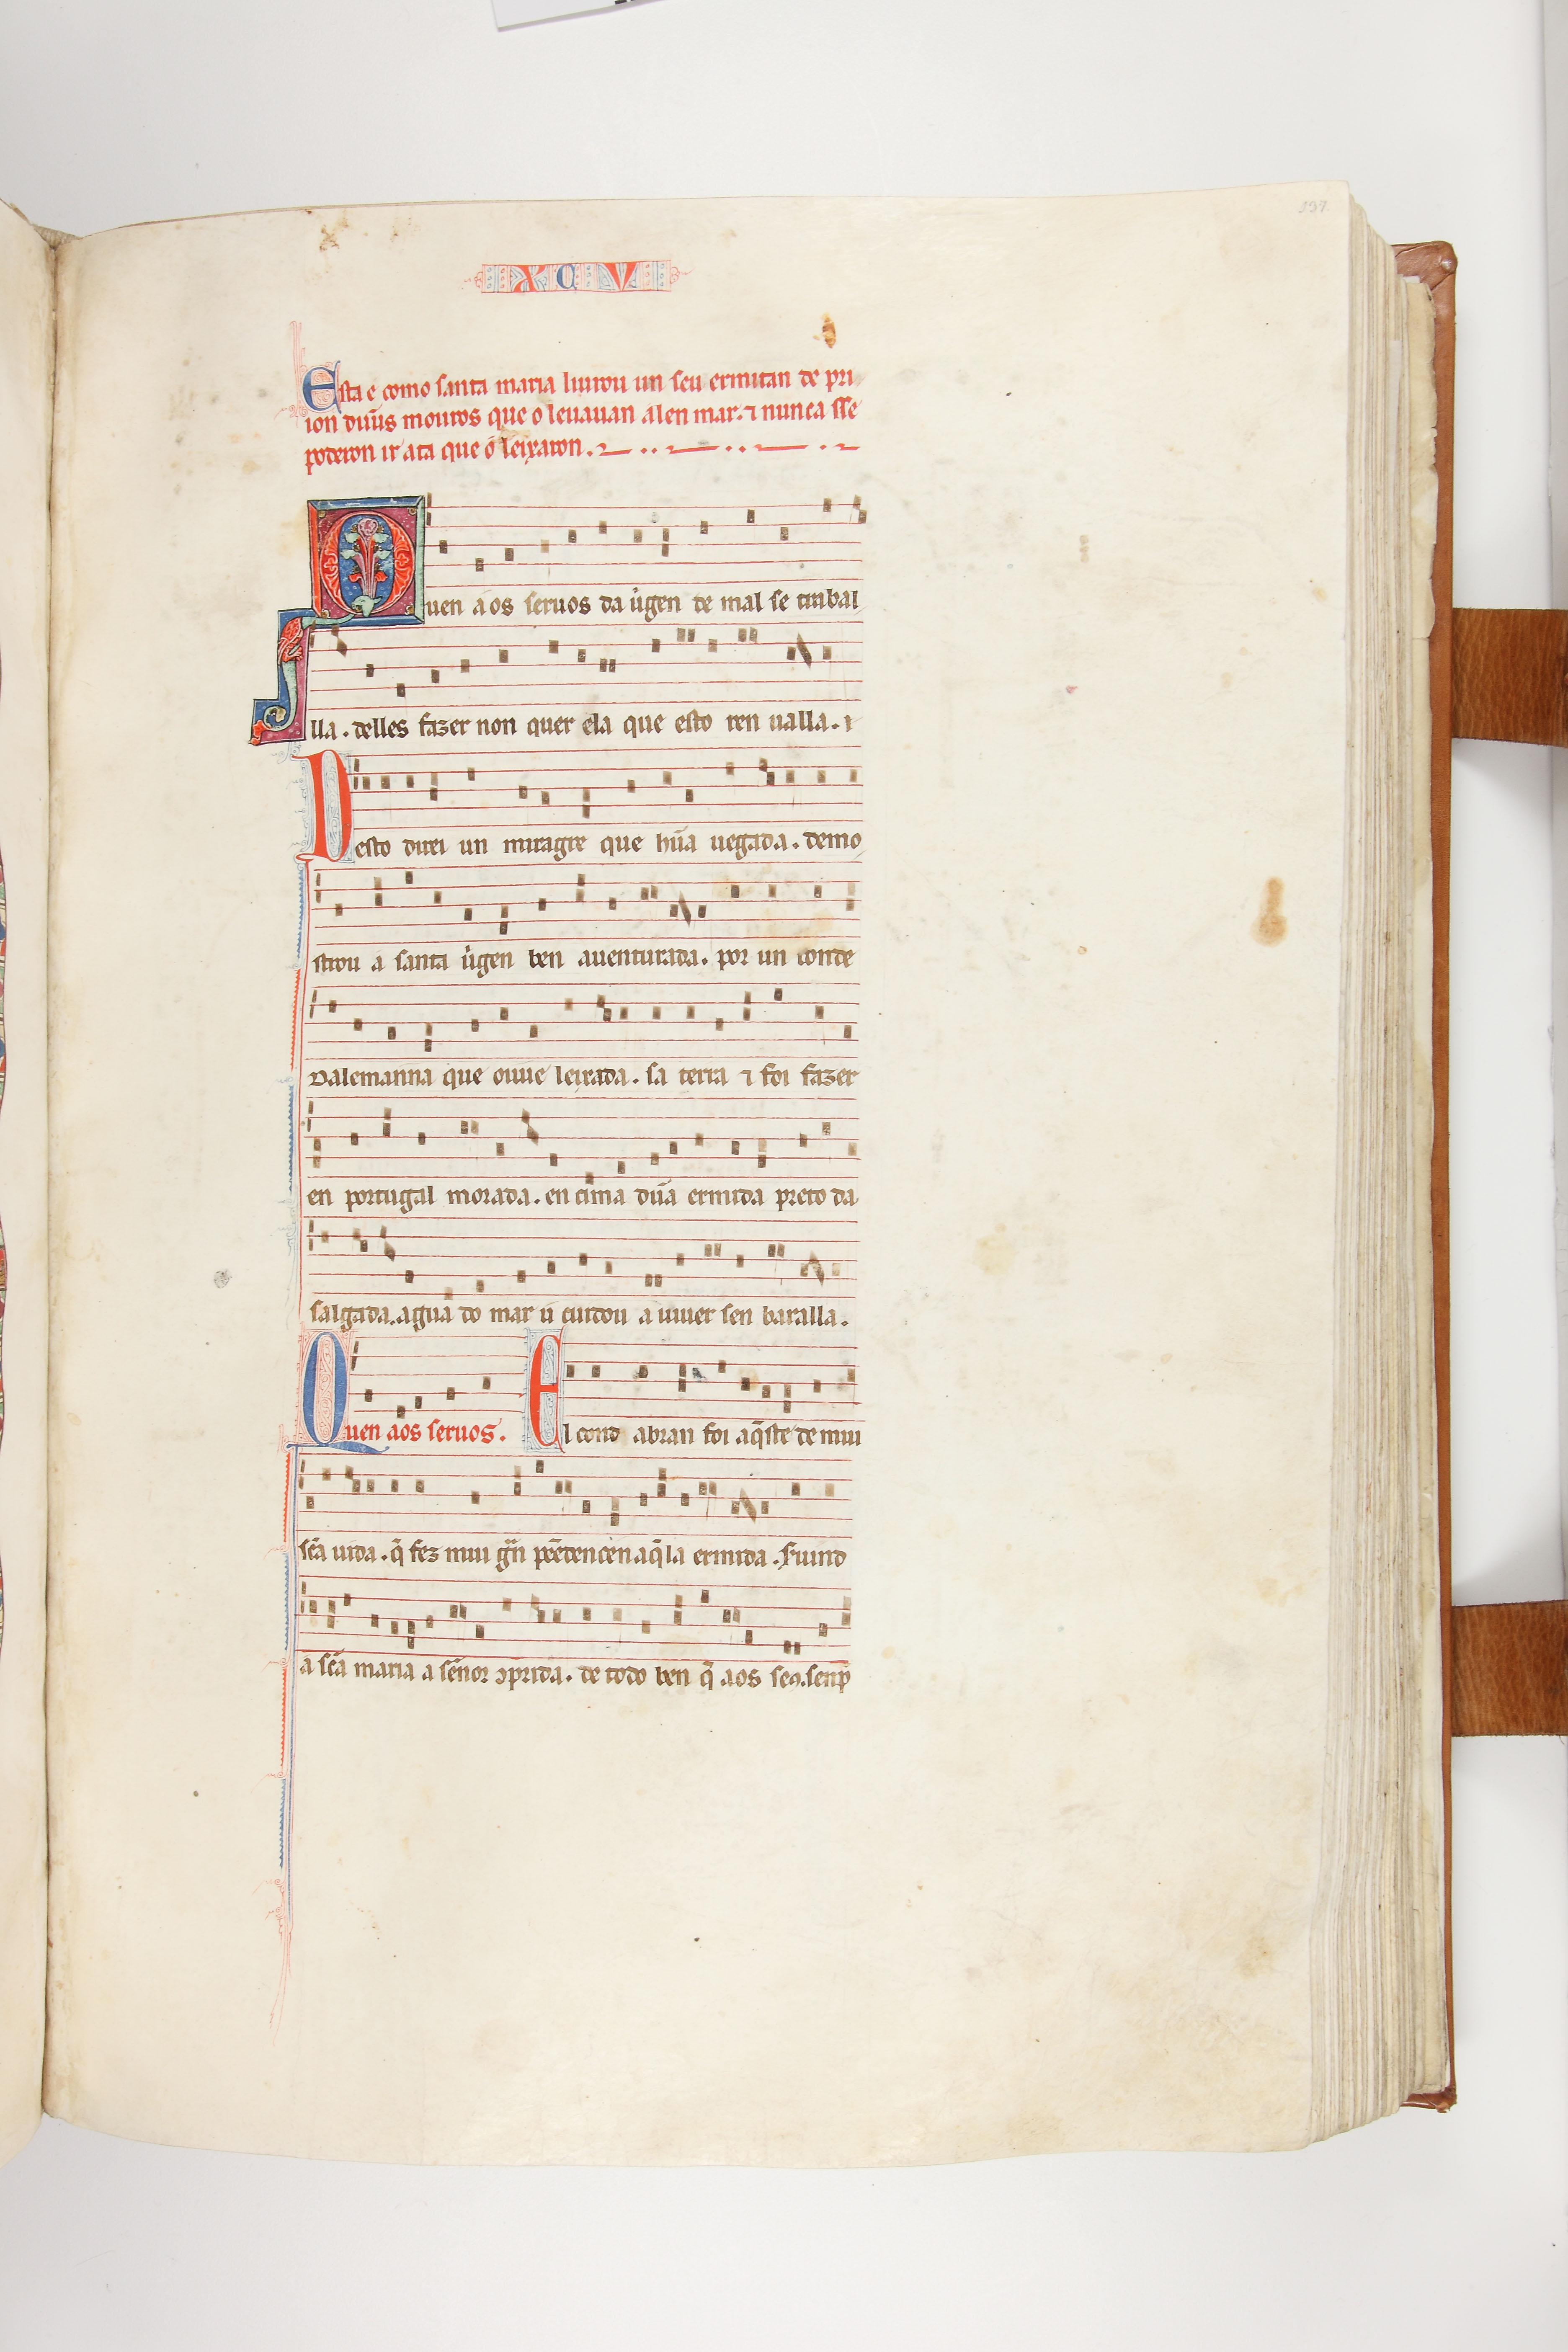 137
XCV
Esta e como santa maria liurou un seu ermitan de pri
ion duũs mouros que o leuauan alen mar. ⁊ nunca sse
poderon ir ata que o leixaron.
Quen aos seruos da uͥgen de mal se trabal
lla. delles fazer non quer ela que esto ren ualla. ⁊
Desto direi un miragre que hũa uegada. demo
strou a santa uͥgen ben auenturada. por un conde
Dalemanna que ouue leixada. sa terra ⁊ foi fazer
en portugal morada. en cima dũa ermida preto da
salgada. agua do mar u cuidou a uiuer sen baralla.
Quen aos seruos. El cond abran foi aq̃ste de mui
sc̃a uida. q̃ fez mui gͣn pẽedencen aq̃la ermida. Seruind
a sc̃a maria a sẽnor ꝯprida. de todo ben q̃ aos seꝯ. senp̃